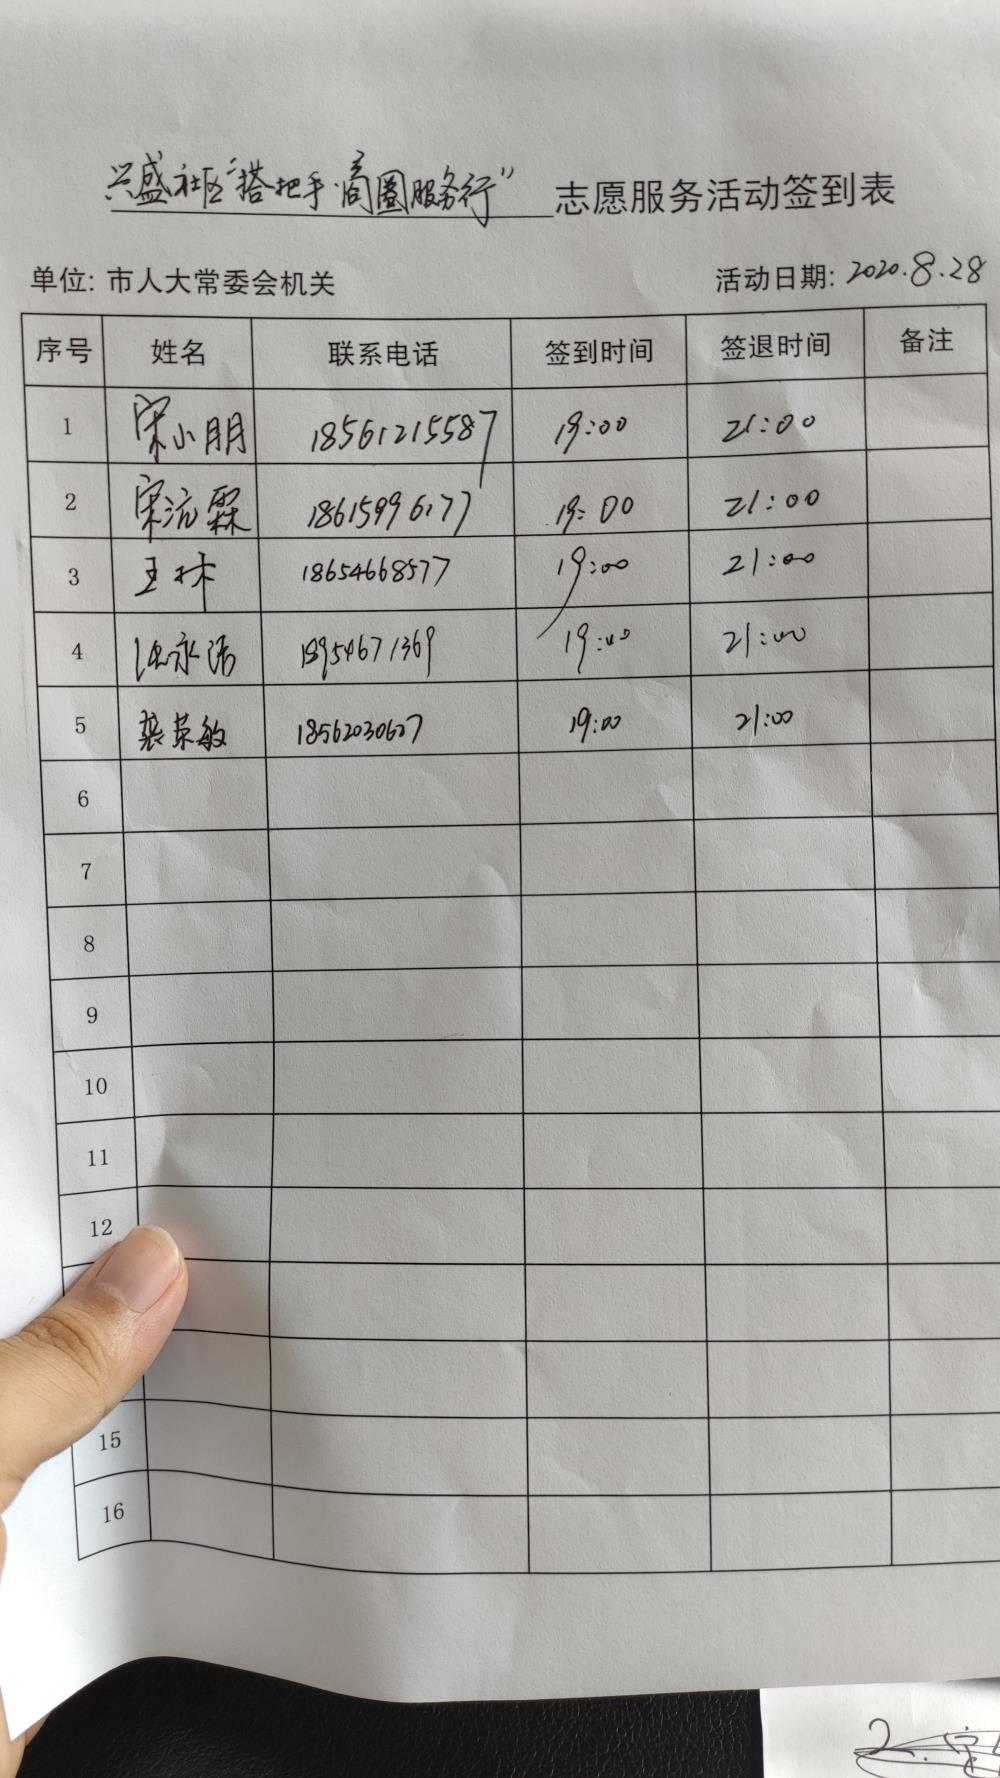 兴盛社区"搭把手·商圈服务行"志愿服务活动签到表
单位: 市人大常委会机关 活动日期: 2020.8.28
序号 姓名 联系电话 签到时间 签退时间 备注
1 宋小朋 18561215587 19:00 21:00
2 宋沆霖 18615996177 19:00 21:00
3 王林 18654668577 19:00 21:00
4 永浩 18954671369 19:00 21:00
5 裴荣敏 18562030627 19:00 21:00
6
7
8
9
10
11
12
15
16
2.